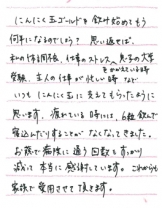 にんにく玉ゴールドを飲み始めてもう
何年になるのでしょう？思い返せば、
私の体調不良、仕事のストレス、息子の大学
受験、主人の仕事が忙しい時など
いつもにんにく玉に支えてもらったように
思います。疲れている時には、6粒飲んで
寝込んだりすることがなくなってきました。
お蔭で病院に通う回数もすっかり
減って本当に感謝しています。これからも
家族で愛用させて頂きます。